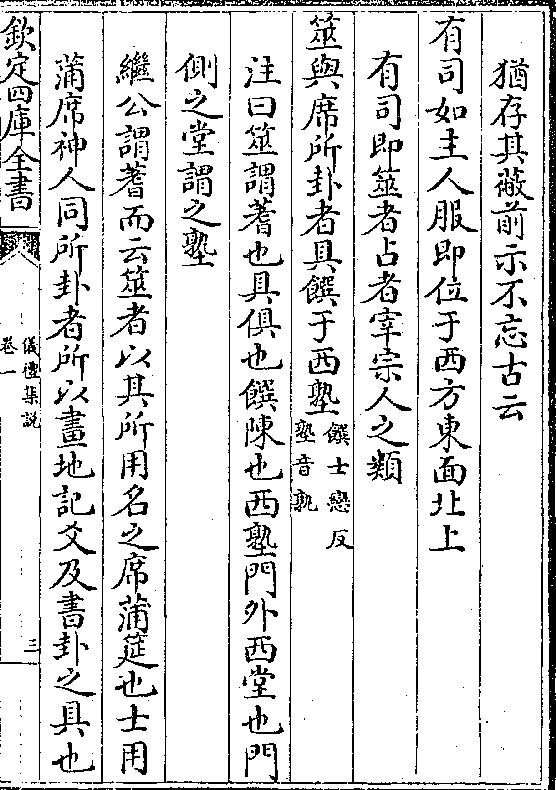 猶存其蔽前示不忘古云
有司如主人服即位于西方東面北上
有司即筮者占者宰宗人之類
筮與席所卦者具饌于西塾饌士戀反
塾音孰
注曰筮謂蓍也具俱也饌陳也西塾門外西堂也門
側之堂謂之塾
繼公謂蓍而云筮者以其所用名之席蒲筵也士用
蒲席神人同所卦者所以畫地記爻及書卦之具也
欽定四庫全書
儀禮集說
卷一
三